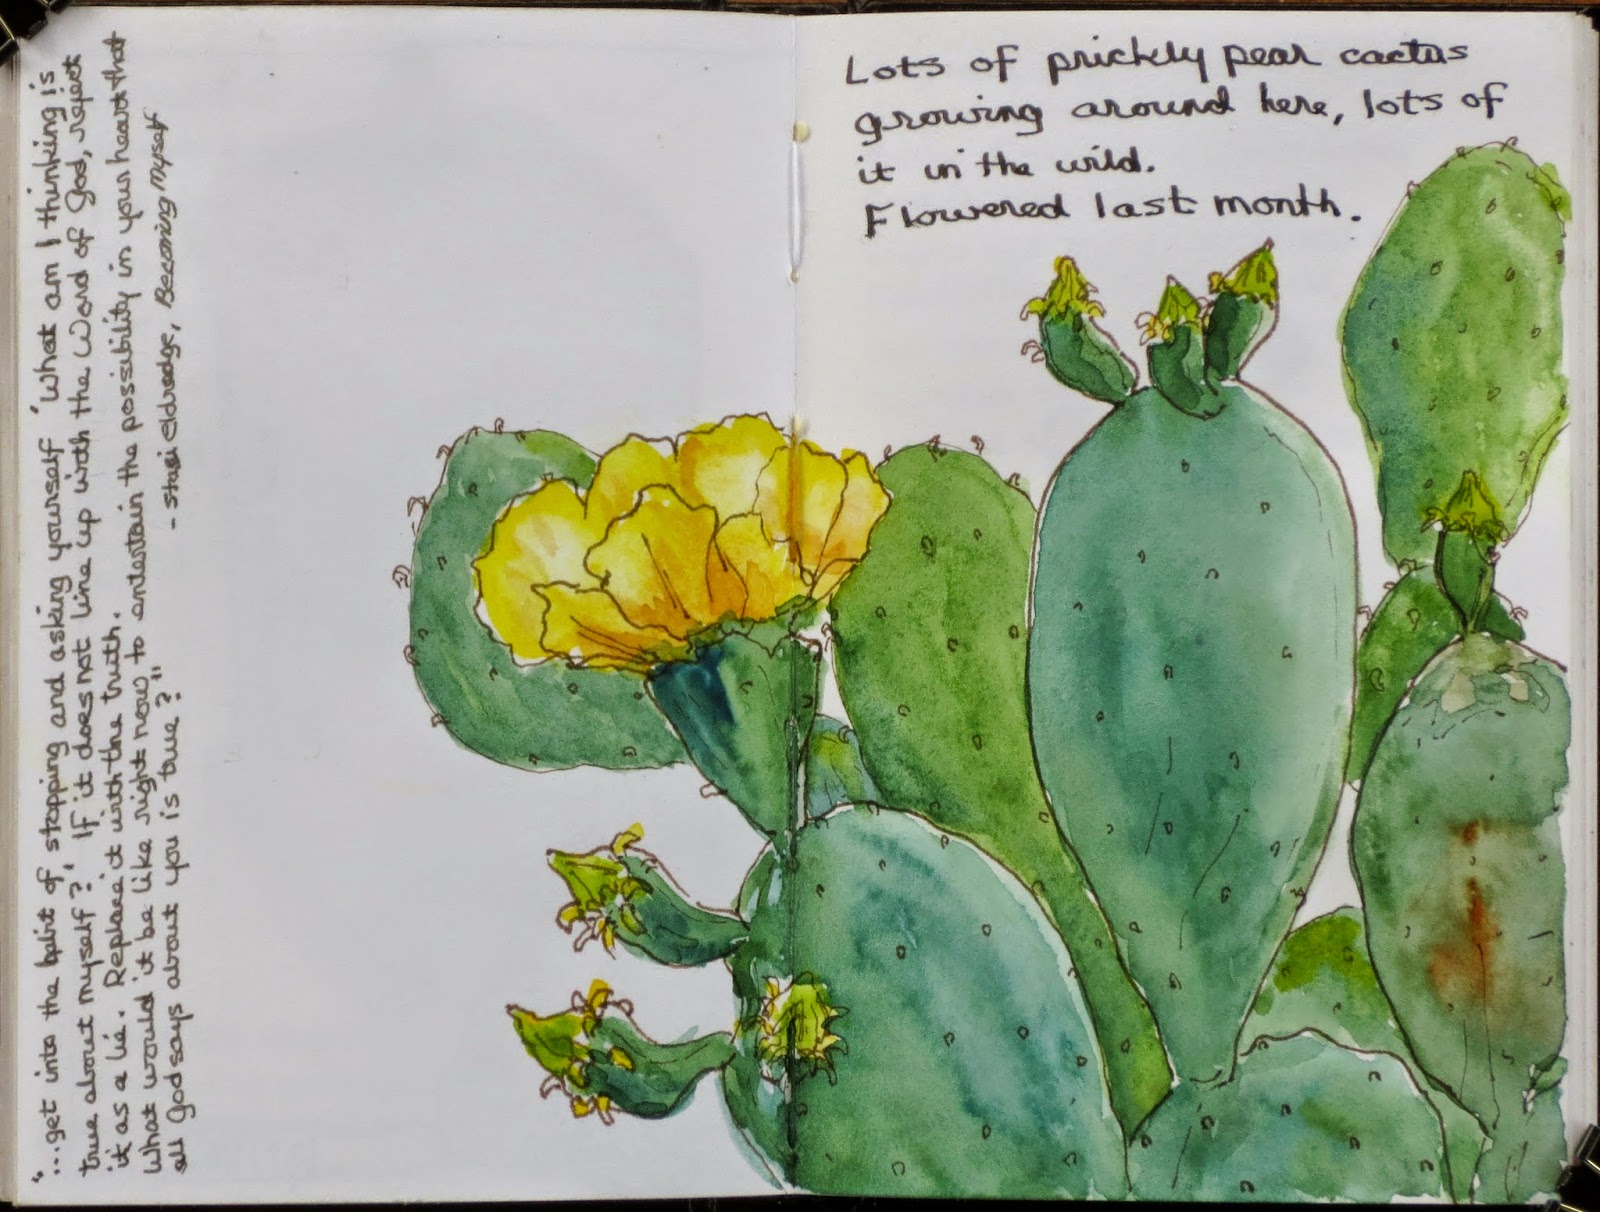 "...get into the habit of stopping and asking yourself 'What am I thinking is
true about myself?' If it does not line up with the Word of God, reject
it as a lie. Replace it with the truth.
What would it be like right now to entertain the possibility in your heart that
all God says about you is true?"
- Stasi Eldredge, Becoming Myself
Lots of prickly pear cactus
growing around here, lots of
it in the wild.
Flowered last month.